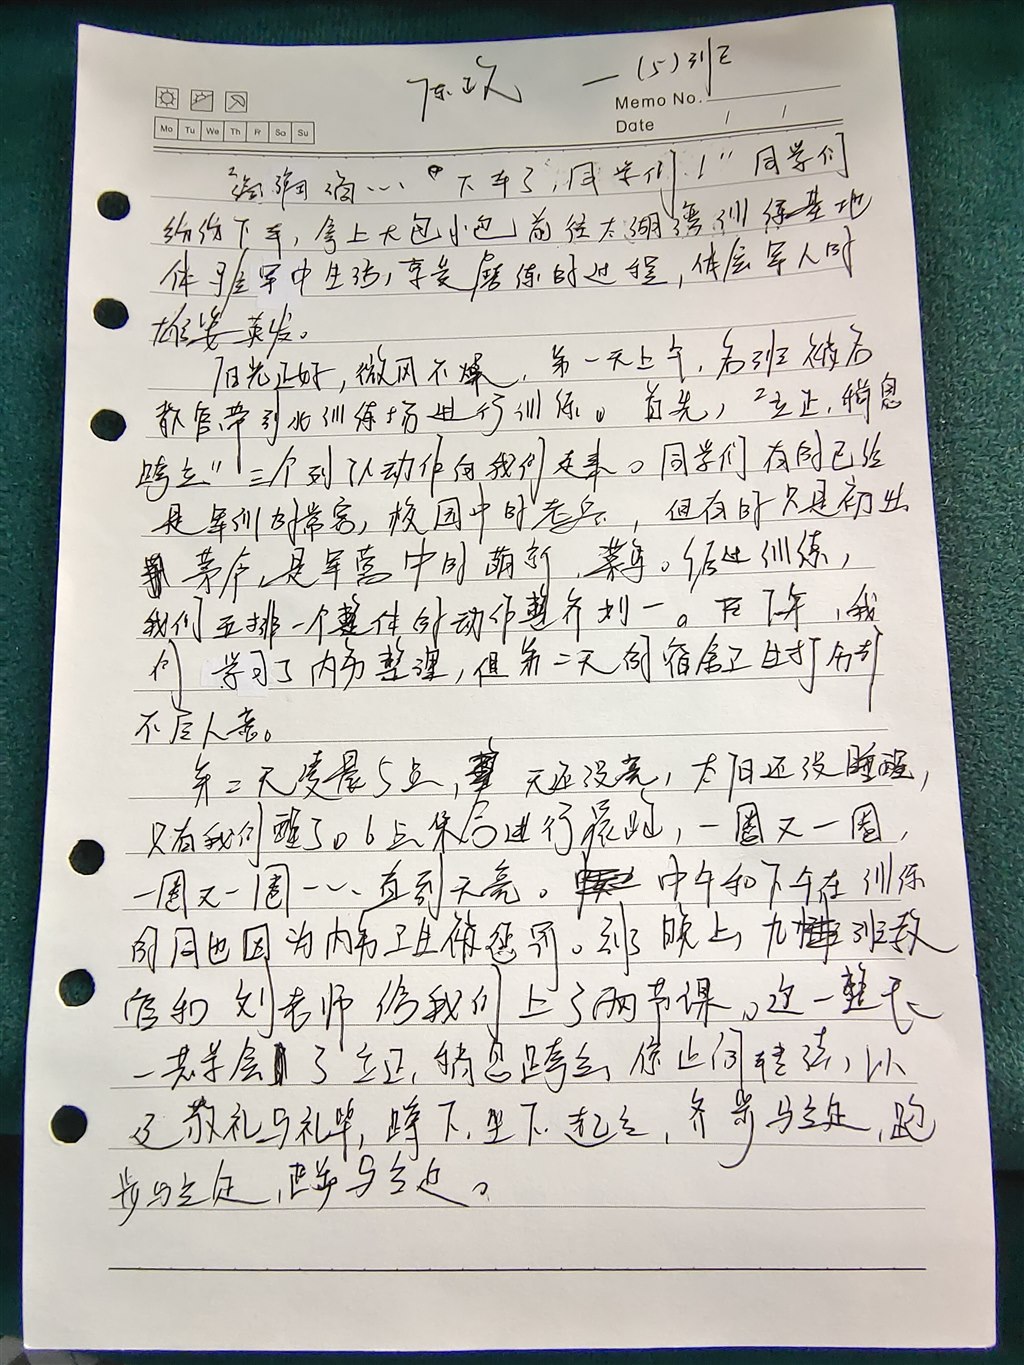 陈政 一(5)班
Memo No.
Mo Tu We Th Fr Sa Su
Date / /
"嘀嘀嘀……"下车了,同学们!"同学们
纷纷下车,拿上大包小包前往太湖湾训练基地
体验军中生活,享受磨练的过程,体会军人的
雄姿英发。
阳光正好,微风不燥,第一天上午,各班被各
教官带到训练场进行训练。首先,"立正,稍息
跨立"三个列队动作向我们走来。同学们有的已经
是军训的常客,校园中的老兵,但有的只是初出
茅庐,是军营中的萌新,菜鸟。经过训练,
我们五排一个整体的动作整齐划一。在下午,我
们 学习了内务整理,但第二天的宿舍卫生打分却
不尽人意。
第二天凌晨5点, 天还没亮,太阳还没睡醒,
只有我们醒了。6点集合进行晨跑,一圈又一圈,
一圈又一圈……直到天亮。 中午和下午在训练
的同也因为内务卫生被惩罚。到晚上,九 班教
官和刘老师给我们上了两节课。这一整天
一共学会 了立正,稍息跨立,停止间转法,以
及敬礼与礼毕,蹲下,坐下,起立,齐步与立定,跑
步与立定,正步与立定。